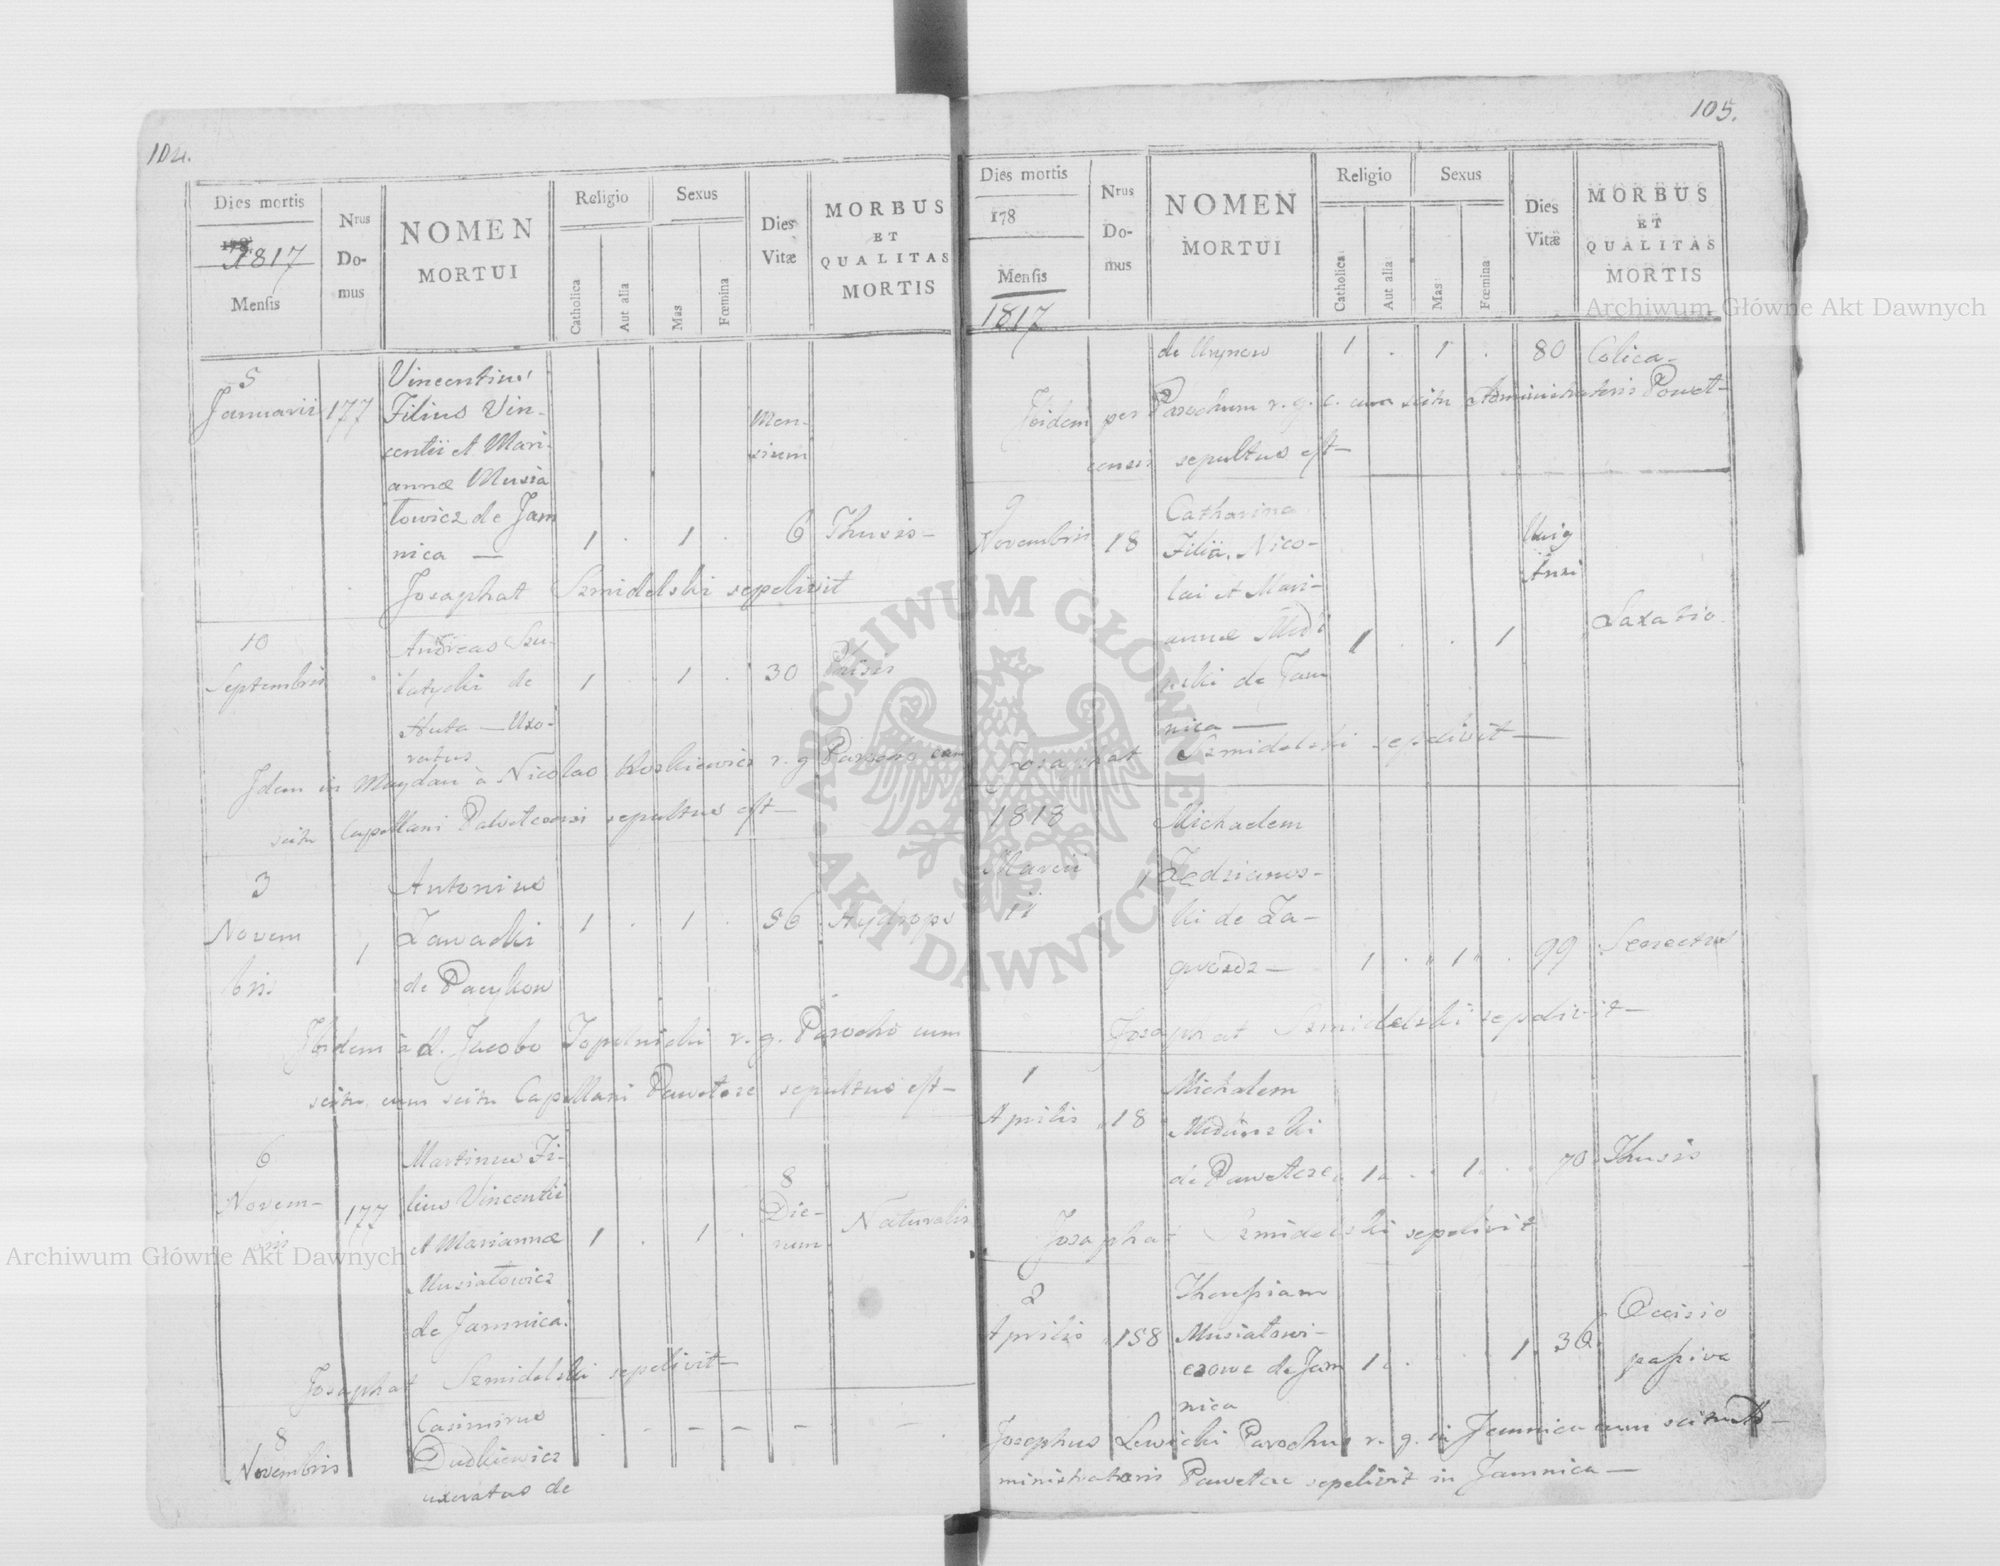 104.
Dies mortis
1817
Mensis
Nrus
Do-
mus
NOMEN
MORTUI
Religio
Catholica
Aut alia
Sexus
Mas
Fœmina
Dies
Vitæ
MORBUS
ET
QUALITAS
MORTIS
5
Januarii 177
Vincentius
Filius Vin-
centii et Mari-
annæ Musia
towicz de Jam
nica —
1 . 1 .
Men-
sium
6 Thusis-
Josaphat Szmidelski sepelivit
10
Septembris
Andreas
de
Huta - Uxo-
ratus
1 . 1 . 30
Idem in Maydan à Nicolao r. g. Parocho cum
scitu Capellani sepultus est-
3
Novem
bris
1
Antonius
Zawadzki
de Pacykow
1 . 1 . 86 Hydrops
Ibidem à d. Jacobo r. g. Parocho cum
scitu cum scitu Capellani Pawelcze sepultus est-
6
Novem-
bris
177
Martinus Fi-
lius Vincentii
et Mariannæ
Musiatowicz
de Jamnica.
1 . 1 .
8
Die-
rum
Naturalis
Josaphat Szmidelski sepelivit-
8
Novembris
Casimirus
Dudkiewicz
uxoratus de
105.
Dies mortis
178
Mensis
1817
Nrus
Do-
mus
NOMEN
MORTUI
Religio
Catholica
Aut alia
Sexus
Mas
Fœmina
Dies
Vitæ
MORBUS
ET
QUALITAS
MORTIS
de Uhrynow 1 . 1 . 80 Colica-
Ibidem per Parochum r. g. c. cum scitu Administratoris Pawel-
censis sepultus est-
9
Novembris 18
Catharina
Filia Nico-
lai et Mari-
annæ
de Jam
nica —
1 . . 1
Laxatio.
Josaphat Szmidelski sepelivit —
1818
Marcii
11
1
Michaelem
Zedzianows-
ki de Za-
gwozdz -
1 . 1 . 99 Senectus
Josaphat Szmidelski sepelivit-
1
Aprilis 18
Michalem
Medinski
de Pawelcze
1 . 1 . 70 Thusis
Josaphat Szmidelski sepelivit
2
Aprilis 158
Theressiam
Musiatowi-
czowe de Jam
nica
1 . . 1 36
Occisio
passiva
Josephus Lewicki Parochus r. g. in Jamnica cum scitu Ad-
ministratoris Pawelcze sepelivit in Jamnica —
Archiwum Główne Akt Dawnych
Archiwum Główne Akt Dawnych
ARCHIWUM GŁÓWNE
AKT DAWNYCH